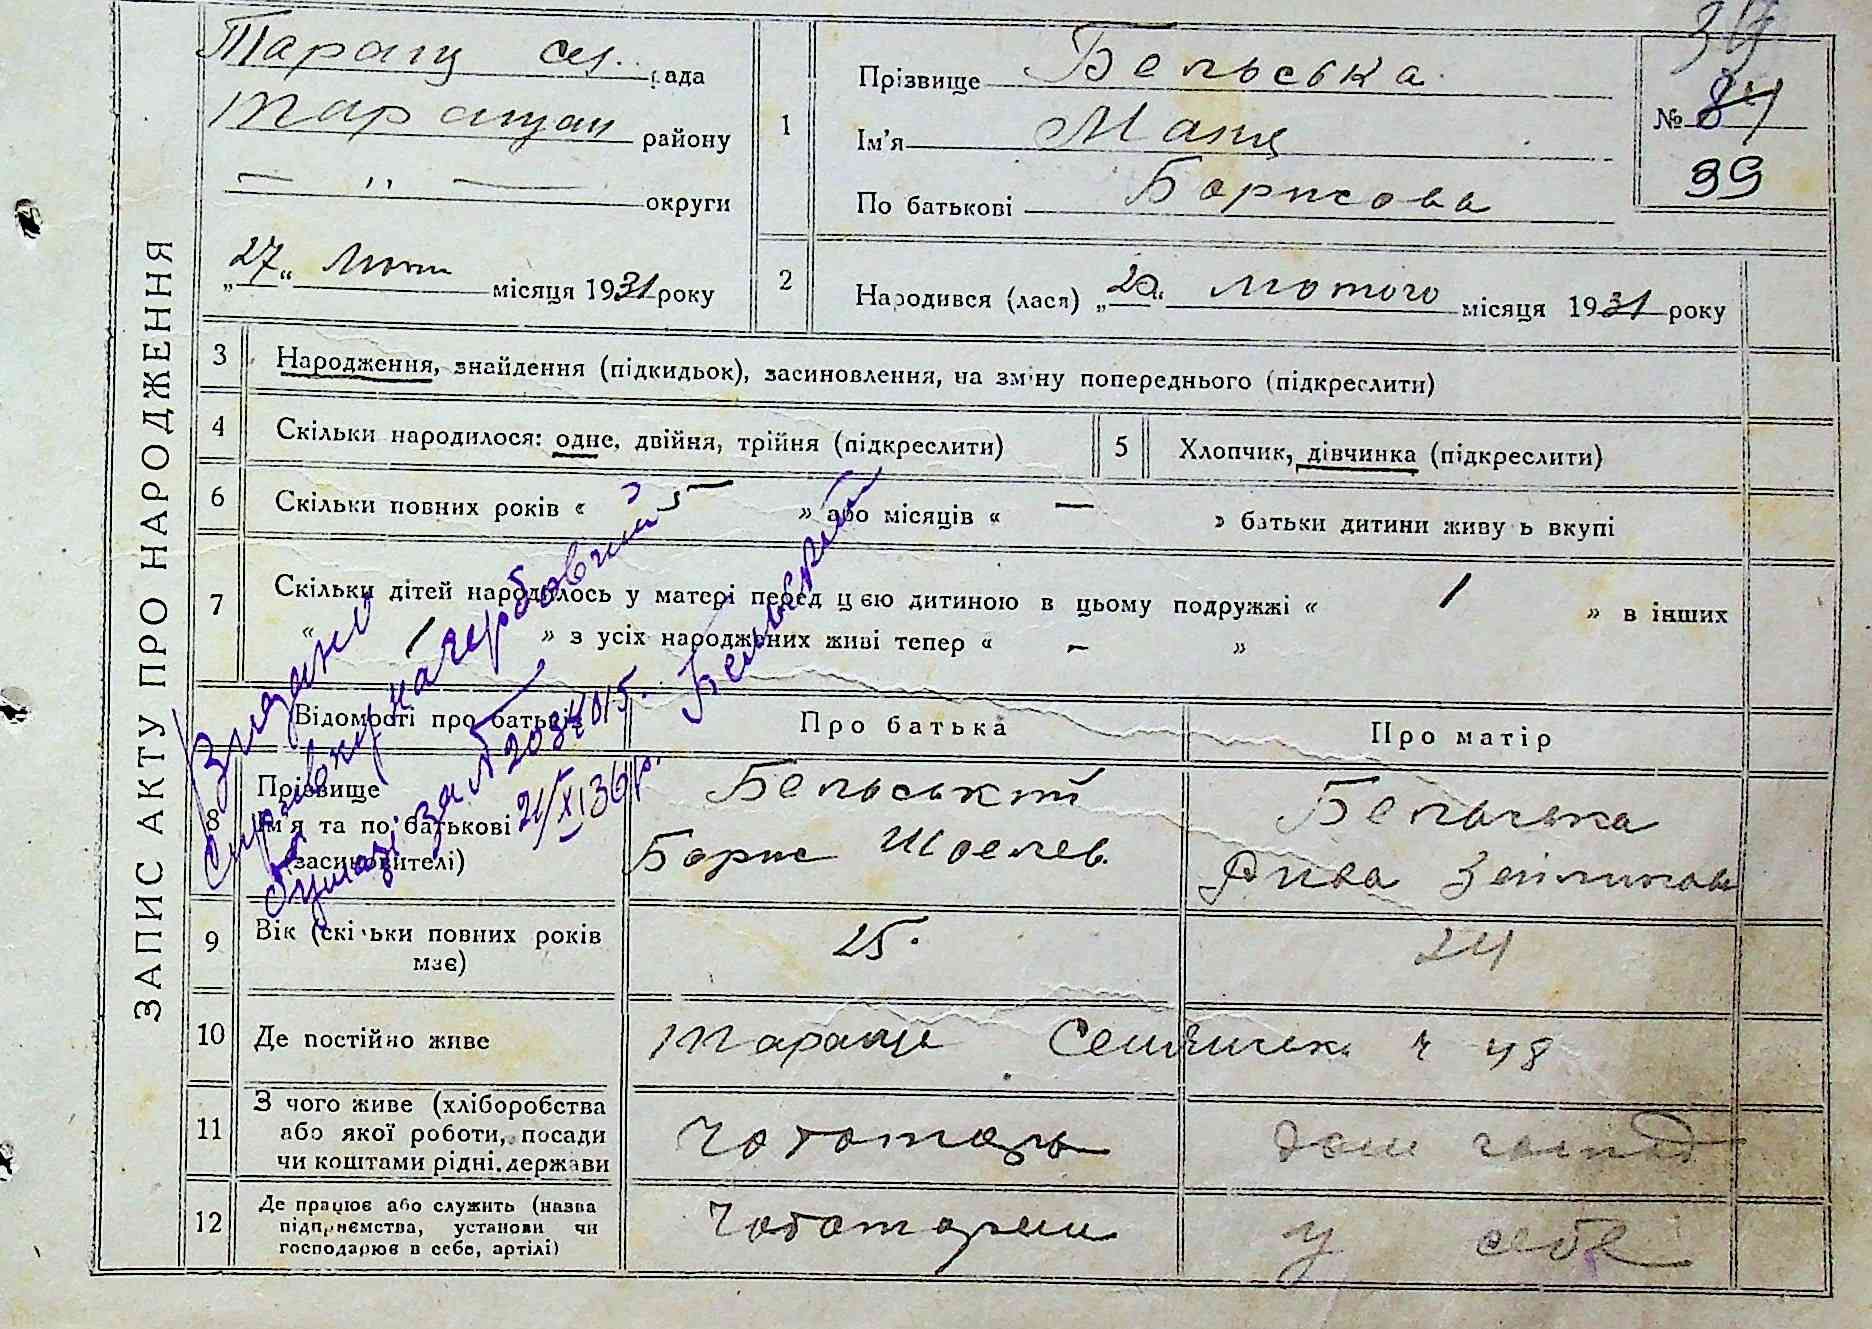 ЗАПИС АКТУ ПРО НАРОДЖЕННЯ
рада
району
— „ — округи
„27“ Лют місяця 1931 року
1
Прізвище Бельська
Ім'я Маня
По батькові Борисова
№ 84
39
2
Народився (лася) „20“ лютого місяця 1931 року
3 Народження, знайдення (підкидьок), засиновлення, на зміну попереднього (підкреслити)
4 Скільки народилося: одне, двійня, трійня (підкреслити)
5 Хлопчик, дівчинка (підкреслити)
6 Скільки повних років « » або місяців « — » батьки дитини живу ь вкупі
7 Скільки дітей народилось у матері перед цією дитиною в цьому подружжі « 1 » в інших
« 1 » з усіх народжених живі тепер « – »
Видано
справку на гербовній
бумазі за № 2034015.
21/XI 36 р.
Бельський
Відомості про батьків
Про батька
Про матір
8 Прізвище
Ім'я та по батькові
(засиновителі)
Бельський
Борис
Бельська
Рива
9 Вік (скільки повних років має)
25.
24
10 Де постійно живе
Тараща ч 48
11 З чого живе (хліборобства
або якої роботи, посади
чи коштами рідні, держави
Чоботарь
дом господ
12 Де працює або служить (назва
підприємства, установи чи
господарює в себе, артілі)
у себе